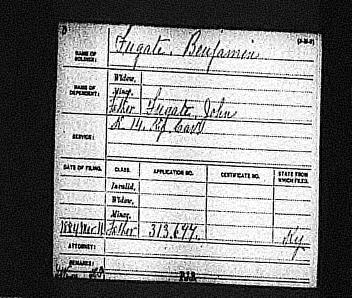 (3-M-8)
NAME OF SOLDIER: Fugate, Benjamin
NAME OF DEPENDENT: Widow,
Minor,
Father Fugate, John
SERVICE: K 14, Ky Cav
DATE OF FILING. CLASS. APPLICATION NO. CERTIFICATE NO. STATE FROM WHICH FILED.
Invalid,
Widow,
Minor,
1884 Mar 11 Father 313,677. Ky.
ATTORNEY:
REMARKS: